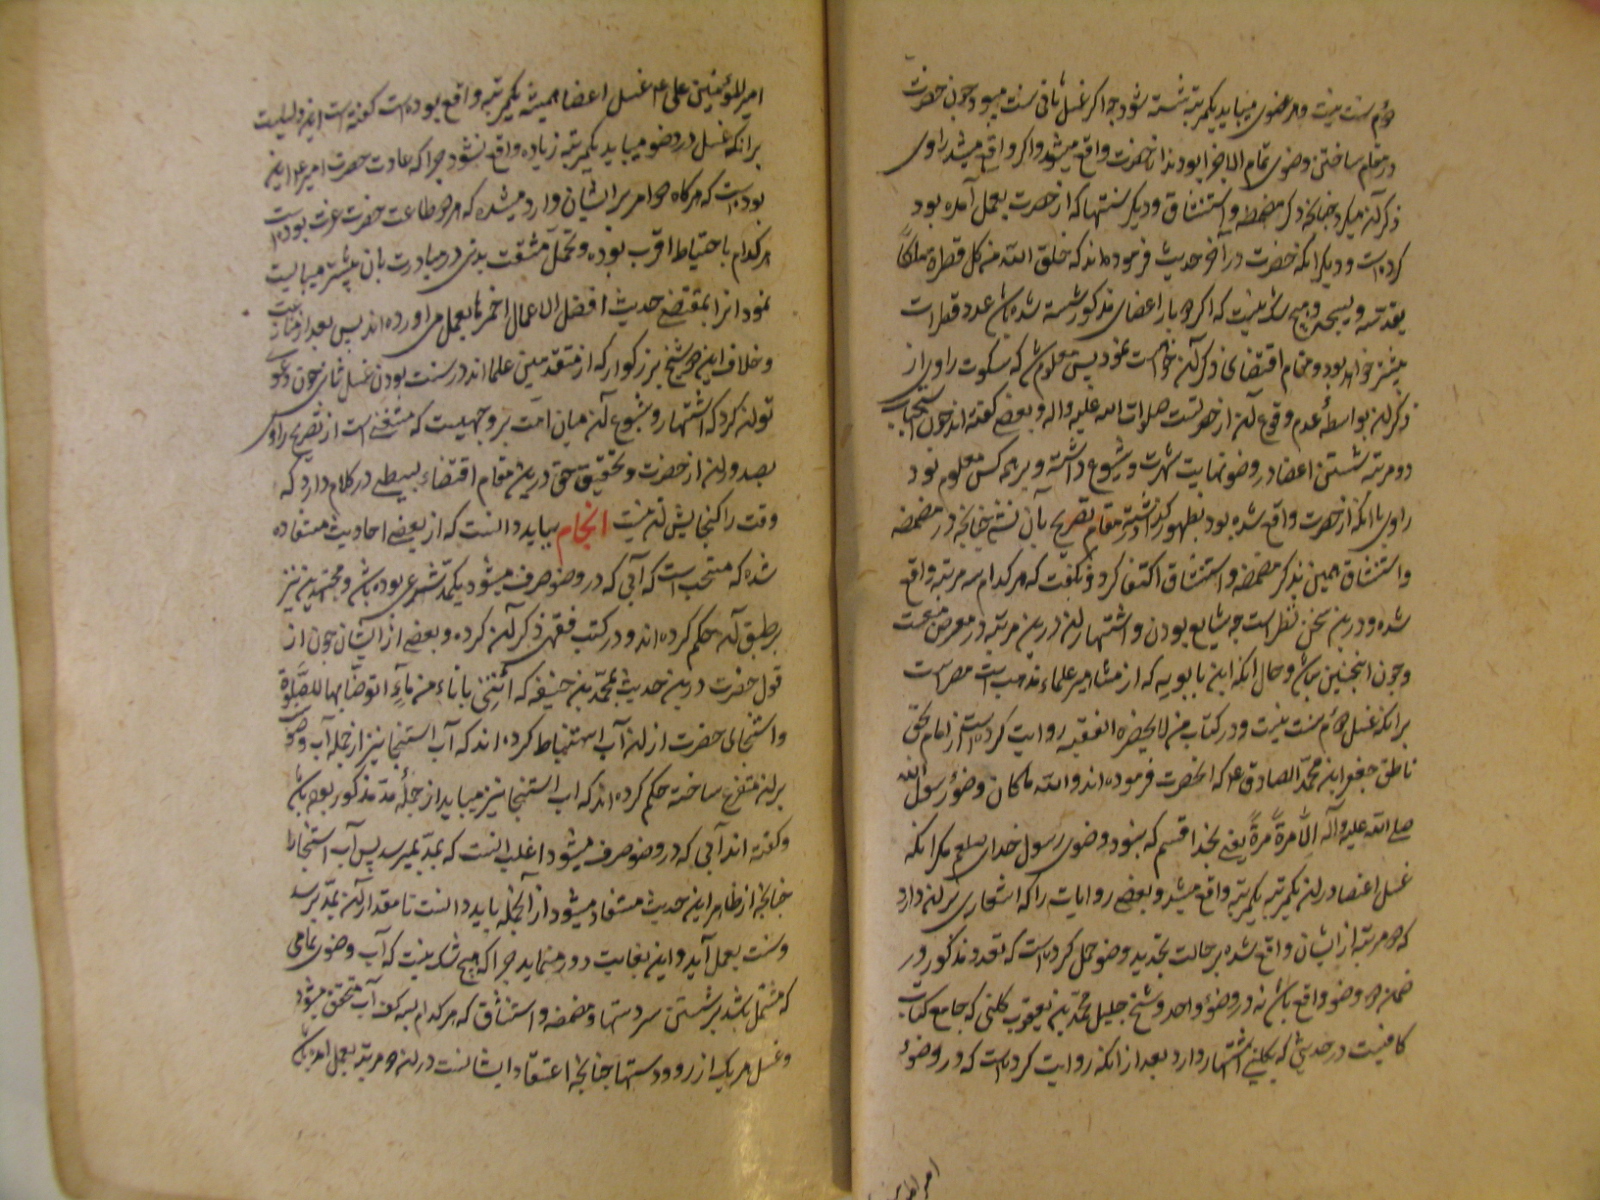 دوم سنت نیست و هر عضوی میباید یکمرتبه شسته شود چه اگر غسل ثانی سنت میبود چون حضرت
در مقام ساختن وضوی تمام الاجزا بودند از حضرت واقع میشد و اگر واقع میشد راوی
ذکر آن میکرد چنانچه ذکر مضمضه و استنشاق و دیگر سنتها که از حضرت بعمل آمده بود
کرده است و دیگر آنکه حضرت در آخر حدیث فرموده‌اند که خلق الله من کل قطرة ملکا
یقدسه و یسبحه و هیچ شک نیست که اگر دو بار اعضای مذکور شسته شده باشد عدد قطرات
بیشتر خواهد بود و مقام اقتضای ذکر آن خواست نمود پس معلوم شد که سکوت راوی از
ذکر آن بواسطهٔ عدم وقوع آن از حضرتست صلوات الله علیه و اله و بعضی گفته اند چون استحباب
دو مرتبه شستن اعضا در وضو نهایت شهرت و شیوع داشته و بر همه کس معلوم بود
راوی با آنکه از حضرت واقع شده بود بظهور گذاشته مقام تصریح بآن نشده چنانچه در مضمضه
و استنشاق همین بذکر مضمضه و استنشاق اکتفا کرد و نگفت که هر کدام سه مرتبه واقع
شده و درین سخن نظر است چه شایع بودن و اشتهار آن درین مرتبه در معرض منعست
و چون اینچنین باشد و حال آنکه ابن بابویه که از مشاهیر علماء مذهبست مصر است
بر آنکه غسل دوم سنت نیست و در کتاب من لا یحضره الفقیه روایت کرده است از امام بحق
ناطق جعفر ابن محمد الصادق ع که آنحضرت فرموده‌اند و الله ما کان وضوء رسول الله
صلی الله علیه و آله الا مرة مرة یعنی بخدا قسم که نبود وضوی رسول خدای صلعم مگر آنکه
غسل اعضا در آن یکمرتبه یکمرتبه واقع میشد و بعضی روایات را که اشعاری بر آن دارد
که دو مرتبه از ایشان واقع شده بر حالت تجدید وضو حمل کرده است که تعدد مذکور در
ضمن دو وضو واقع باشد نه در وضوء واحد و شیخ جلیل محمد بن یعقوب کلینی که جامع کتاب
کافیست در حدیثی که بکلینی اشتهار دارد بعد از آنکه روایت کرده است که در وضوء
امیر المؤمنین
امیر المؤمنین علی ع غسل اعضا همیشه یکمرتبه واقع بوده است گفته است این دلیلیست
بر آنکه غسل در وضو میباید یکمرتبه زیاده واقع نشود چرا که عادت حضرت امیر ع این
بوده است که هرگاه دو امر بر ایشان وارد میشده که هر دو طاعت حضرت عزت بوده است
هر کدام باحتیاط اقرب بوده و تحمل مشقت بدنی در مبادرت بآن بیشتر میبایست
نمود آنرا بمقتضی حدیث افضل الاعمال احمزها بعمل می اورده اند پس بعد از منازعت
و خلاف این دو شیخ بزرگوار که از متقدمین علما اند در سنت بودن غسل ثانی چون دعوی
توان کرد که اشتهار و شیوع آن میان امت بر وجهیست که مستغنی است از تصریح راوی
بصدور آن از حضرت و تحقیق حق درین مقام اقتضاء بسطی در کلام دارد که
وقت را گنجایش آن نیست انجام بباید دانست که از بعضی احادیث مستفاد
شده که مستحب است که آبی که در وضو صرف میشود یکمد شرعی بوده باشد و مجتهدین نیز
بر طبق آن حکم کرده اند و در کتب فقهی ذکر آن کرده و بعضی از ایشان چون از
قول حضرت درین حدیث بمحمد بن حنیفه که ائتنی باناء من ماء اتوضا بها للصلوة
و استنجای حضرت از آن آب استنباط کرده اند که آب استنجا نیز از جمله آب وضو
بر آن متفرع ساخته حکم کرده اند که اب استنجا نیز میباید از جملهٔ مد مذکور بوده باشد
و گفته اند آبی که در وضو صرف میشود اغلب آنست که بمد نمیرسد پس آب استنجا را
چنانچه از ظاهر این حدیث مستفاد میشود از آنجمله باید دانست تا مقدار آن بمد برسد
و سنت بعمل آید و این بغایت دور مینماید چرا که هیچ شک نیست که آب وضوی تمامی
که مشتمل باشد بر شستن سر دستها و مضمضه و استنشاق که هر کدام بسه کف آب متحقق میشود
و غسل هر یک از رو و دستها چنانچه اعتقاد ایشانست در آن دو مرتبه بعمل آمده باشد